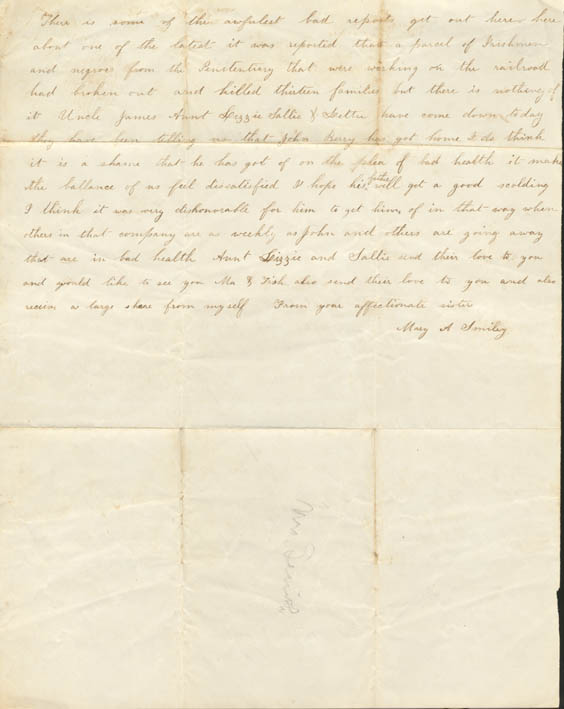 There is some of the awfulest bad reports get out here here
about one of the latest it was reported that a parcel of Irishmen
and negroes from the Penetentiary that were working on the railroad
had broken out and killed thirteen families but there is nothing of
it Uncle James Aunt Lizzie Sallie & Gettie have come down today
They have been telling us that John Berry has got home I do think
it is a shame that he has got of on the plea of bad health it make
the ballance of us feel dissatisfied I hope his father will get a good scolding
I think it was very dishonorable for him to get him of in that way when
others in that company are as weekly as John and others are going away
that are in bad health Aunt Lizzie and Sallie send their love to you
and would like to see you Ma & Tish also send their love to you and also
receive a large share from myself From your affectionate sister
Mary A Smiley
Mrs